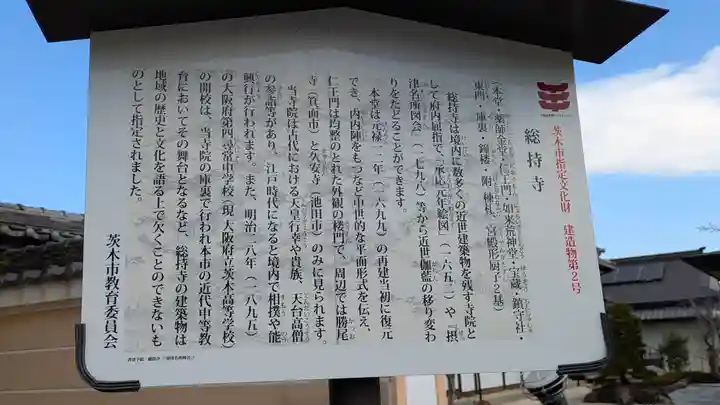 茨木市指定文化財　建造物第2号
総持寺
(本堂・薬師金堂・仁王門・如来荒神堂・宝蔵・鎮守社・
東門・庫裏・鐘楼・附 棟札、宮殿形厨子2基)
総持寺は境内に数多くの近世建築物を残す寺院と
して府内屈指で、「承応元年絵図」(一六五二)や『摂
津名所図会』(一七九八)等から近世伽藍の移り変わ
りをたどることができます。
本堂は元禄一二年(一六九九)の再建当初に復元
でき、内内陣をもつなど中世的な平面形式を伝え、
仁王門は均整のとれた外観の楼門で、周辺では勝尾
寺(箕面市)と久安寺(池田市)のみに見られます。
当寺院は古代における天皇行幸や貴族、天台高僧
の参詣等があり、江戸時代になると境内で相撲や能
興行が行われます。また、明治二八年(一八九五)
の大阪府第四尋常中学校(現 大阪府立茨木高等学校)
の開校は、当寺院の庫裏で行われ本市の近代中等教
育においてその舞台となるなど、総持寺の建築物は
地域の歴史と文化を語る上で欠くことのできないも
のとして指定されました。
茨木市教育委員会